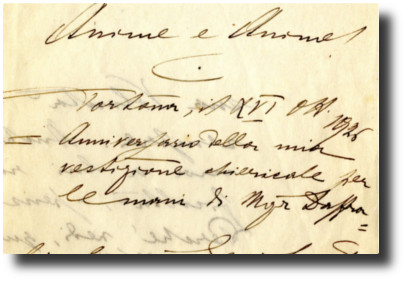 Anime e Anime!
Tortona, il XVI Ott. 1926
Anniversario della mia
vestizione chiericale per
le mani di Mgr Daffra =